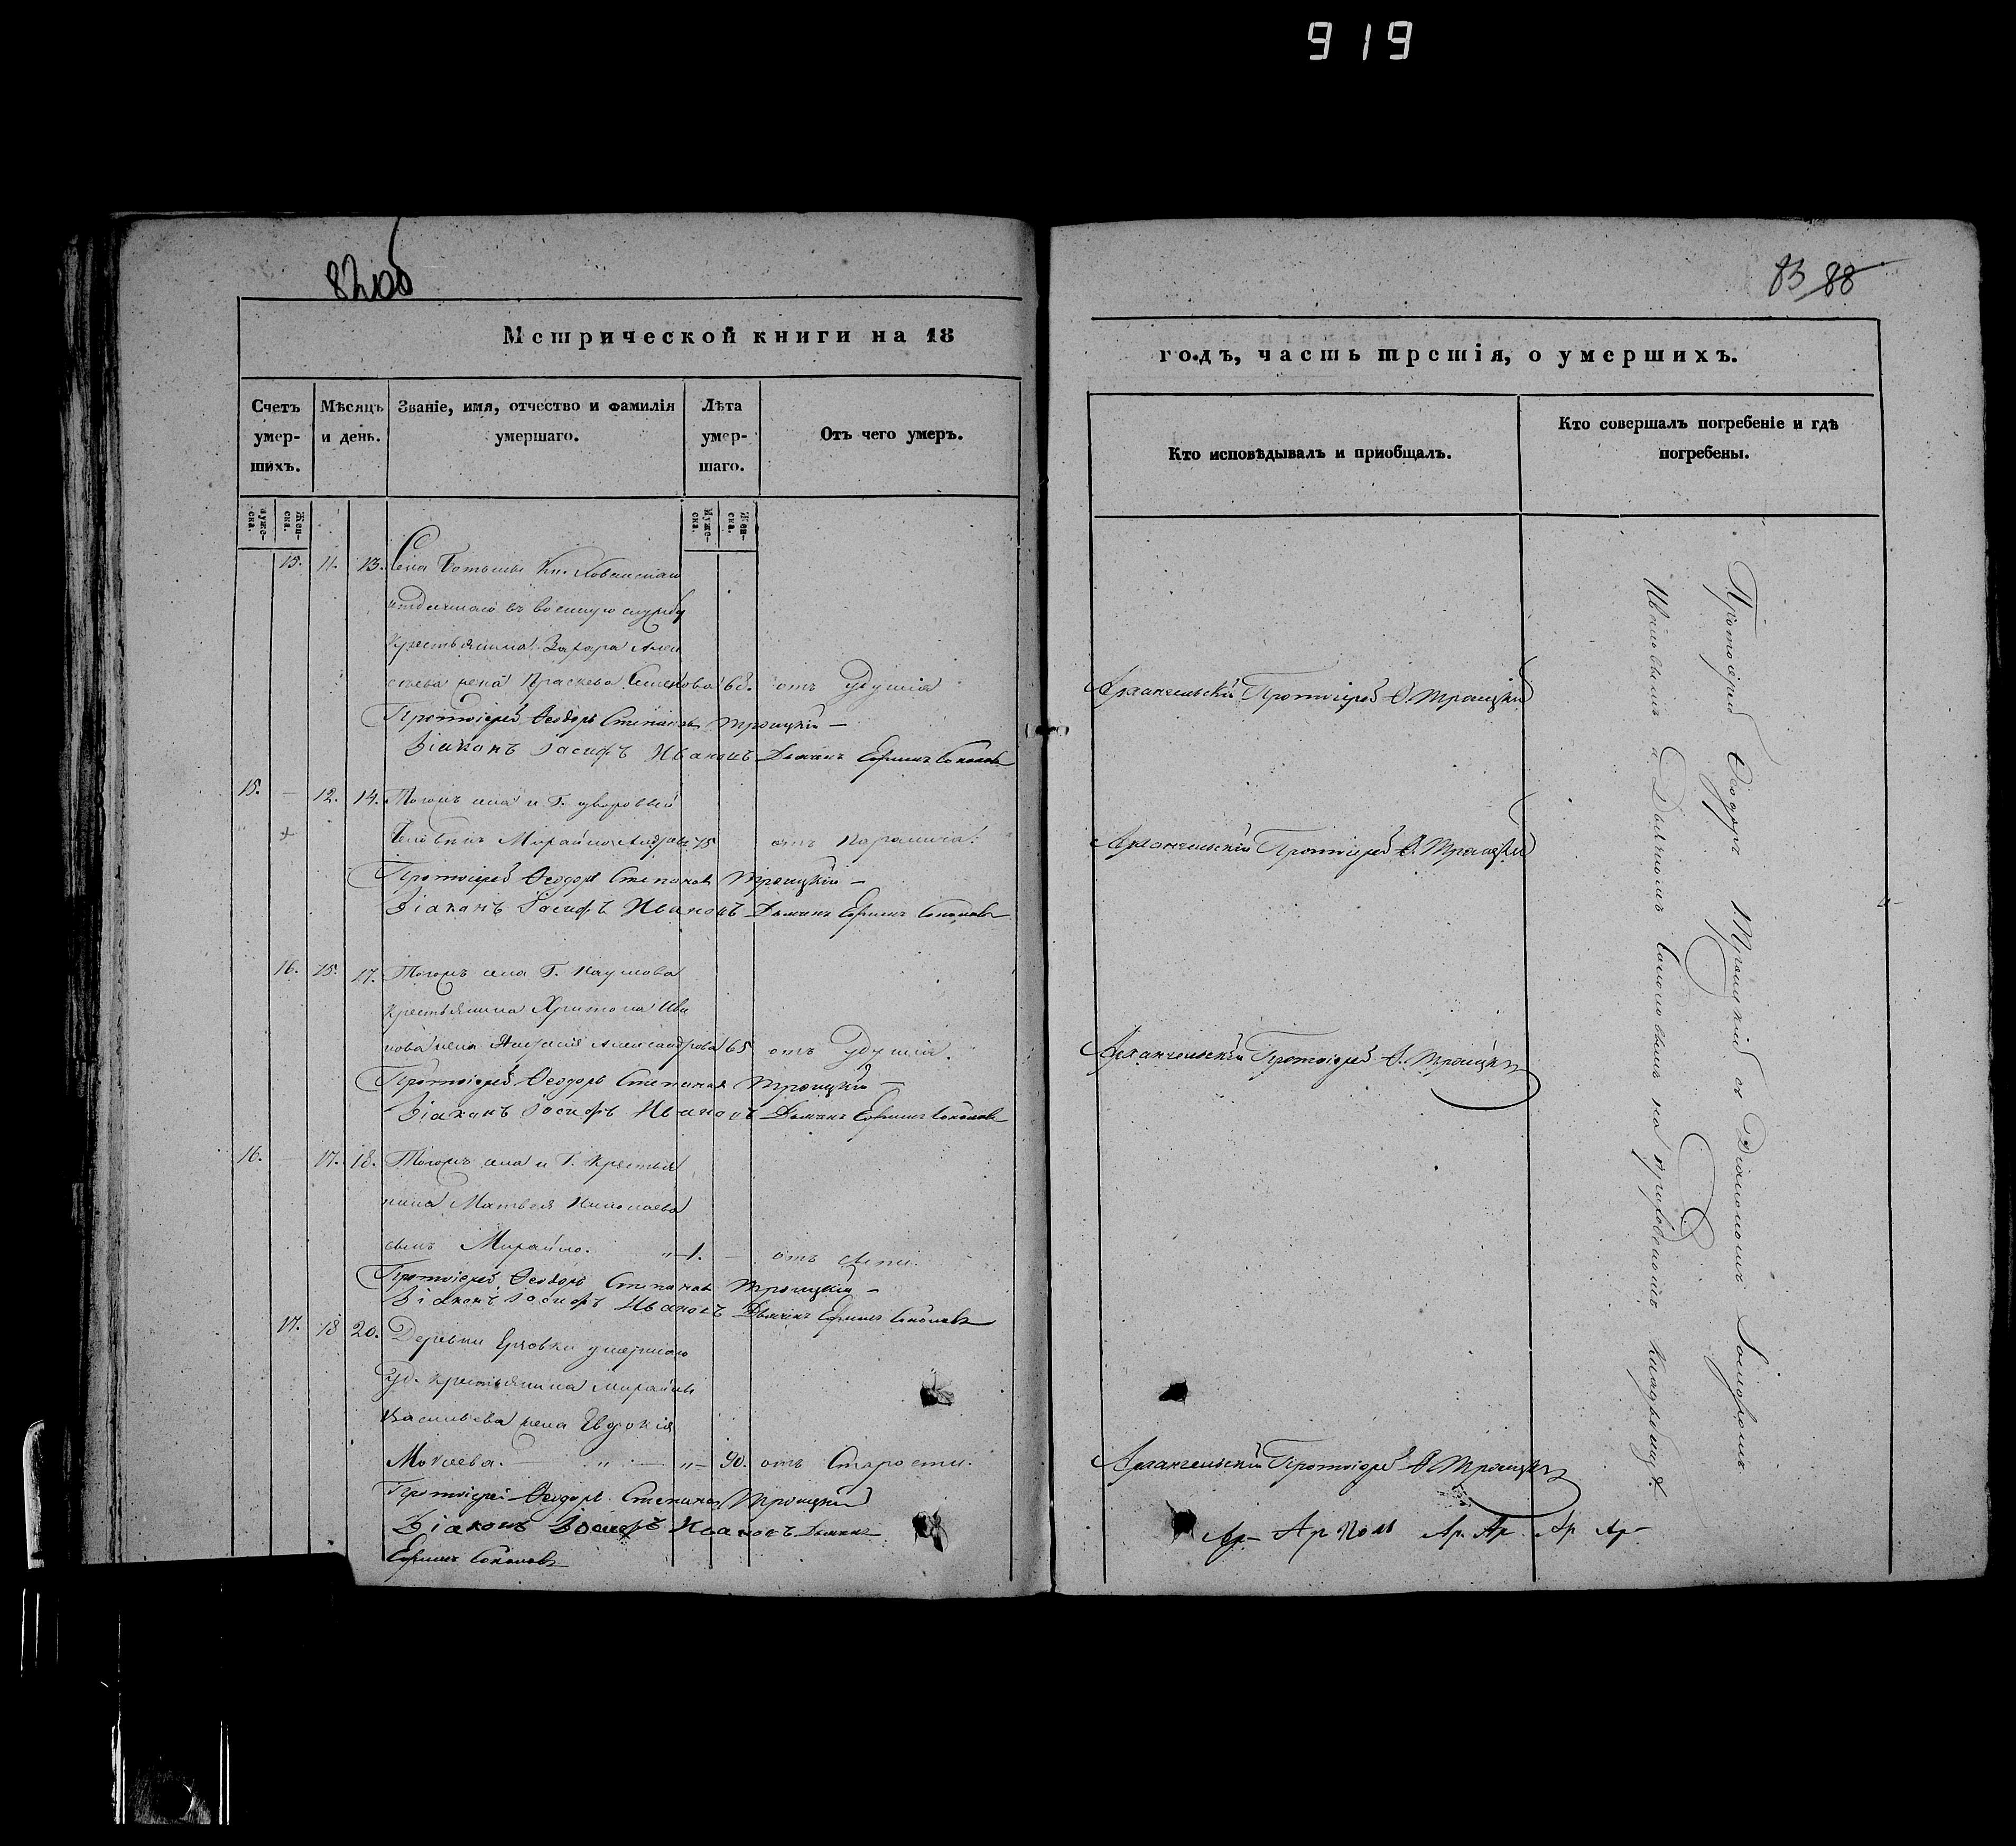 919
82об
83 88
Метрической книги на 18
годъ, часть третія, о умершихъ.
Счетъ умер-шихъ.
Мѣсяцъ и день.
Званіе, имя, отчество и фамилія умершаго.
Лѣта умер-шаго.
Отъ чего умеръ.
Кто исповѣдывалъ и пріобщалъ.
Кто совершалъ погребеніе и гдѣ погребены.
Муже-ска.
Жен-ска.
Муже-ска.
Жен-ска.
15. 11. 13. Села Кн.
въ военную службу
крестьянина Захара Алек
сѣева жена Праскева Семенова 68. отъ удушія
Архангельскій Протоіерей Ѳ. Троицкій
Протоіерей Ѳеодоръ Степановъ Троицкій
Діаконъ Іосифъ Ивановъ Дьячекъ Ефимъ Соколовъ
15. 12. 14. Тогожъ села и Г. дворовый
человѣкъ Михайло 75 отъ паралича.
Архангельскій Протоіерей Ѳ. Троицкій
Протоіерей Ѳеодоръ Степановъ Троицкій
Діаконъ Іосифъ Ивановъ Дьячекъ Ефимъ Соколовъ
16. 15. 17. Тогожъ села Г. Наумова
крестьянина Харитона Ива
нова жена Александрова 65 отъ удушія.
Архангельскій Протоіерей Ѳ. Троицкій
Протоіерей Ѳеодоръ Степановъ Троицкій
Діаконъ Іосифъ Ивановъ Дьячекъ Ефимъ Соколовъ
16. 17. 18. Тогожъ села и Г. крестья
нина Матвея Николаева
сынъ Михайло. 1. отъ
Протоіерей Ѳеодоръ Степановъ Троицкій
Діаконъ Іосифъ Ивановъ Дьячекъ Ефимъ Соколовъ
17. 18 20. Деревни умершаго
уд. крестьянина Михайлы
Васильева жена Евдокія
Мокеева. 90. отъ старости.
Архангельскій Протоіерей Ѳ. Троицкій
Протоіерей Ѳеодоръ Степановъ Троицкій
Діаконъ Іосифъ Ивановъ Дьячекъ
Ефимъ Соколовъ
Ар Ар Ар Ар Ар Ар
Протоіерей Ѳеодоръ Троицкій съ Діакономъ Іосифомъ
Ивановымъ и Дьячкомъ Соколовымъ на приходскомъ кладбищѣ.